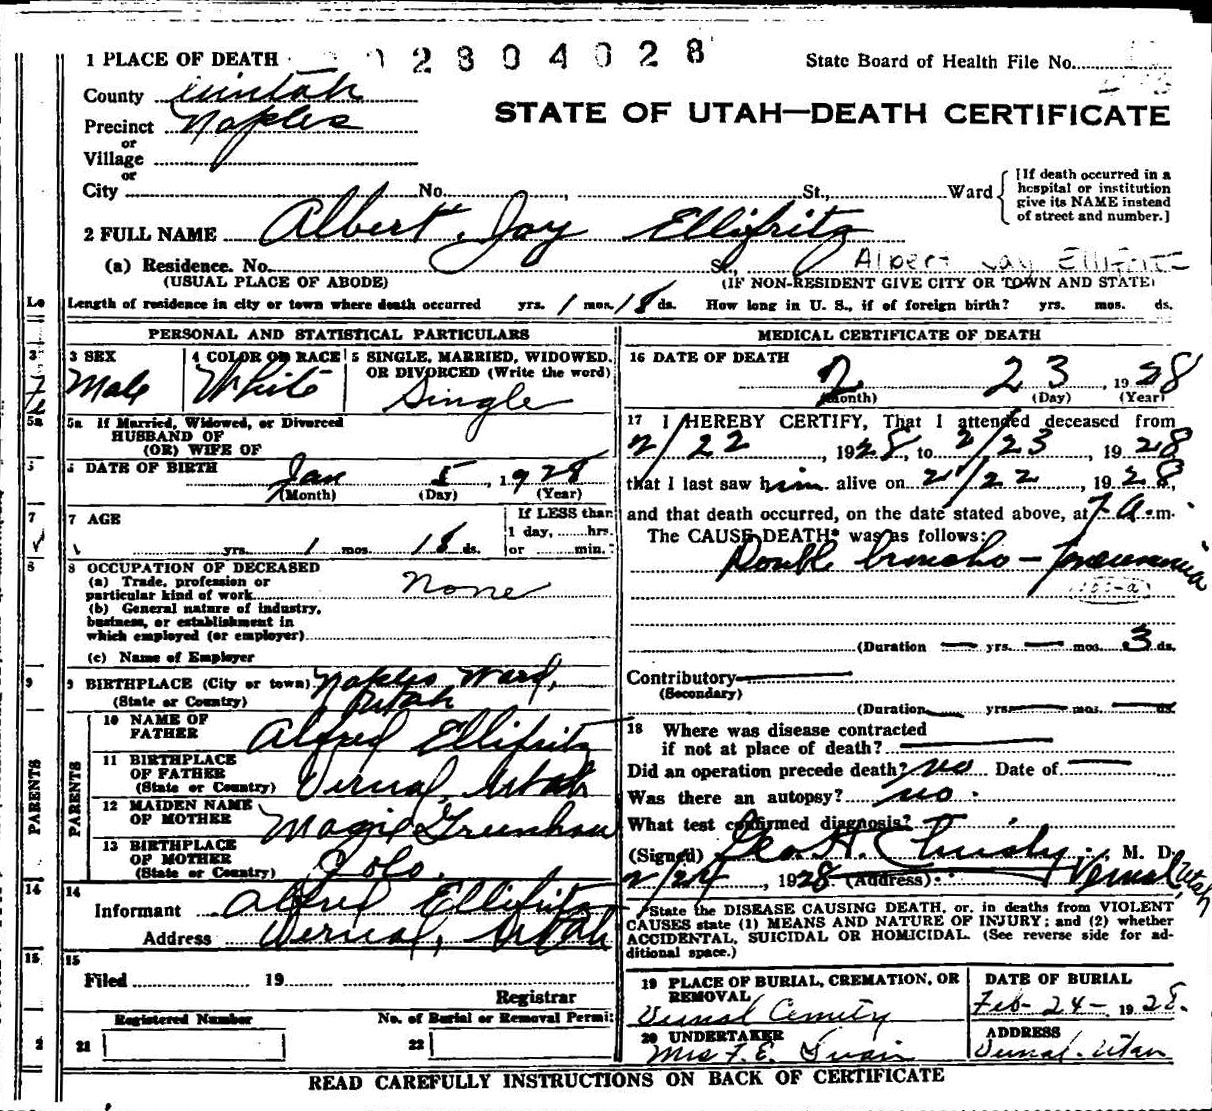 1 PLACE OF DEATH
2804028
State Board of Health File No.
County Uintah
STATE OF UTAH—DEATH CERTIFICATE
Precinct Naples
or
Village
or
City No. St., Ward
[If death occurred in a
hospital or institution
give its NAME instead
of street and number.]
2 FULL NAME Albert Jay Ellifritz
(a) Residence. No. St., Albert Jay Ellifritz
(USUAL PLACE OF ABODE) (IF NON-RESIDENT GIVE CITY OR TOWN AND STATE)
Length of residence in city or town where death occurred yrs. 1 mos. 18 ds. How long in U. S., if of foreign birth? yrs. mos. ds.
PERSONAL AND STATISTICAL PARTICULARS
3 SEX
Male
4 COLOR OR RACE
White
5 SINGLE, MARRIED, WIDOWED,
OR DIVORCED (Write the word)
Single
5a If Married, Widowed, or Divorced
HUSBAND OF
(OR) WIFE OF
6 DATE OF BIRTH
Jan 5, 1928
(Month) (Day) (Year)
7 AGE
yrs. 1 mos. 18 ds.
If LESS than
1 day, hrs.
or min.
8 OCCUPATION OF DECEASED
(a) Trade, profession or
particular kind of work None
(b) General nature of industry,
business, or establishment in
which employed (or employer)
(c) Name of Employer
9 BIRTHPLACE (City or town) Naples Ward,
(State or Country) Utah
PARENTS
PARENTS
10 NAME OF
FATHER Alfred Ellifritz
11 BIRTHPLACE
OF FATHER
(State or Country) Vernal, Utah
12 MAIDEN NAME
OF MOTHER Magie Greenhow
13 BIRTHPLACE
OF MOTHER
(State or Country) Colo.
14
Informant Alfred Ellifritz
Address Vernal, Utah
15
Filed 19
Registrar
Registered Number
21
No. of Burial or Removal Permit
22
MEDICAL CERTIFICATE OF DEATH
16 DATE OF DEATH
2 23, 1928
(Month) (Day) (Year)
17 I HEREBY CERTIFY, That I attended deceased from
2/22, 1928, to 2/23, 1928
that I last saw him alive on 2/22, 1928,
and that death occurred, on the date stated above, at 7 a.m.
The CAUSE DEATH* was as follows:
Double broncho-pneumonia
(Duration — yrs. — mos. 3 ds.
Contributory —
(Secondary)
(Duration — yrs. — mos. — ds.
18 Where was disease contracted
if not at place of death? —
Did an operation precede death? no Date of —
Was there an autopsy? no.
What test confirmed diagnosis?
(Signed) Geo. H. Christy, M. D.
2/24, 1928 (Address) Vernal Utah
*State the DISEASE CAUSING DEATH, or, in deaths from VIOLENT
CAUSES state (1) MEANS AND NATURE OF INJURY; and (2) whether
ACCIDENTAL, SUICIDAL OR HOMICIDAL. (See reverse side for ad-
ditional space.)
19 PLACE OF BURIAL, CREMATION, OR
REMOVAL
Vernal Cemetery
DATE OF BURIAL
Feb-24-1928.
20 UNDERTAKER
Mrs F. E. Swain
ADDRESS
Vernal. Utah
READ CAREFULLY INSTRUCTIONS ON BACK OF CERTIFICATE